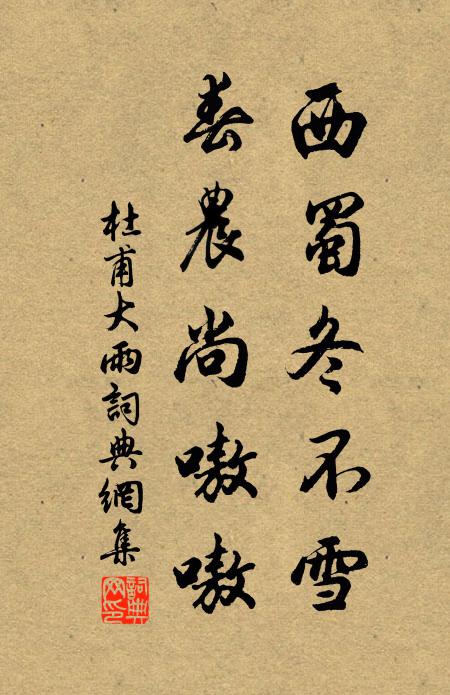 西蜀冬不雪
春農尚嗷嗷
杜甫大雨詞典網集
詞典网印